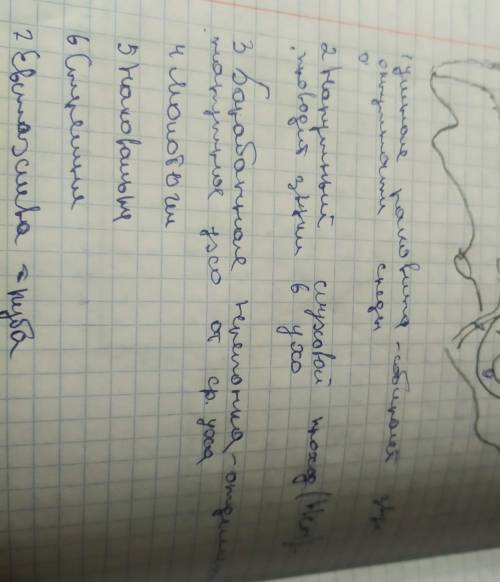 1 Ушная раковина - собирает
окружности среды
2 Наружный слуховой проход
проводит звуки в ухо
3 Барабанная перепонка - отделяет
наружное ухо от ср. уха
4 молоточек
5 Наковальня
6 Стремечко
7 Евстахиева труба